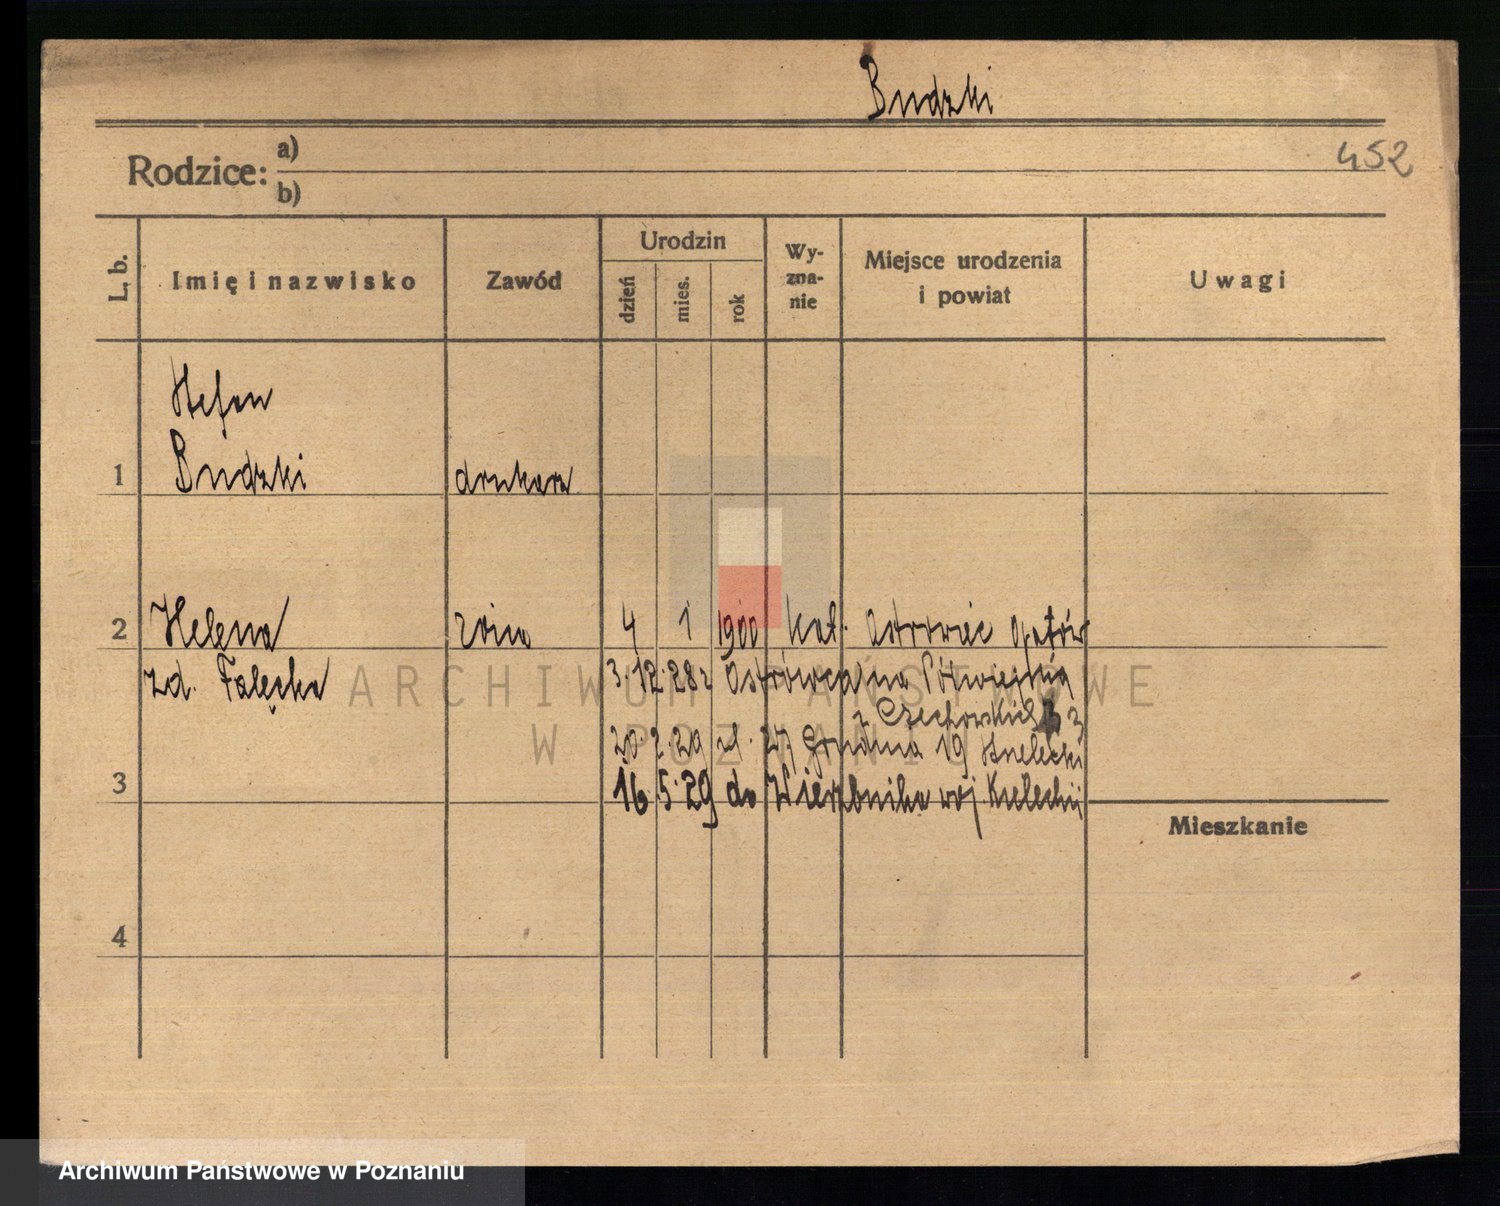 Budzki
452
Rodzice: a)
b)
L. b.
Imię i nazwisko
Zawód
Urodzin
dzień
mies.
rok
Wy-
zna-
nie
Miejsce urodzenia
i powiat
Uwagi
Stefan
1 Budzki drukarz
2 Helena żona 4 1 1900 kat. Ostrowiec Opatów
zd. Falęcka 3.12.28 z Ostrowca na Półwiejską
z Czechowskich
20.2.29 27 Grudnia 19 Strzelecki
3 16.5.29 do Wierzbnika woj. Kieleckij
Mieszkanie
4
ARCHIWUM PAŃSTWOWE
W POZNANIU
Archiwum Państwowe w Poznaniu